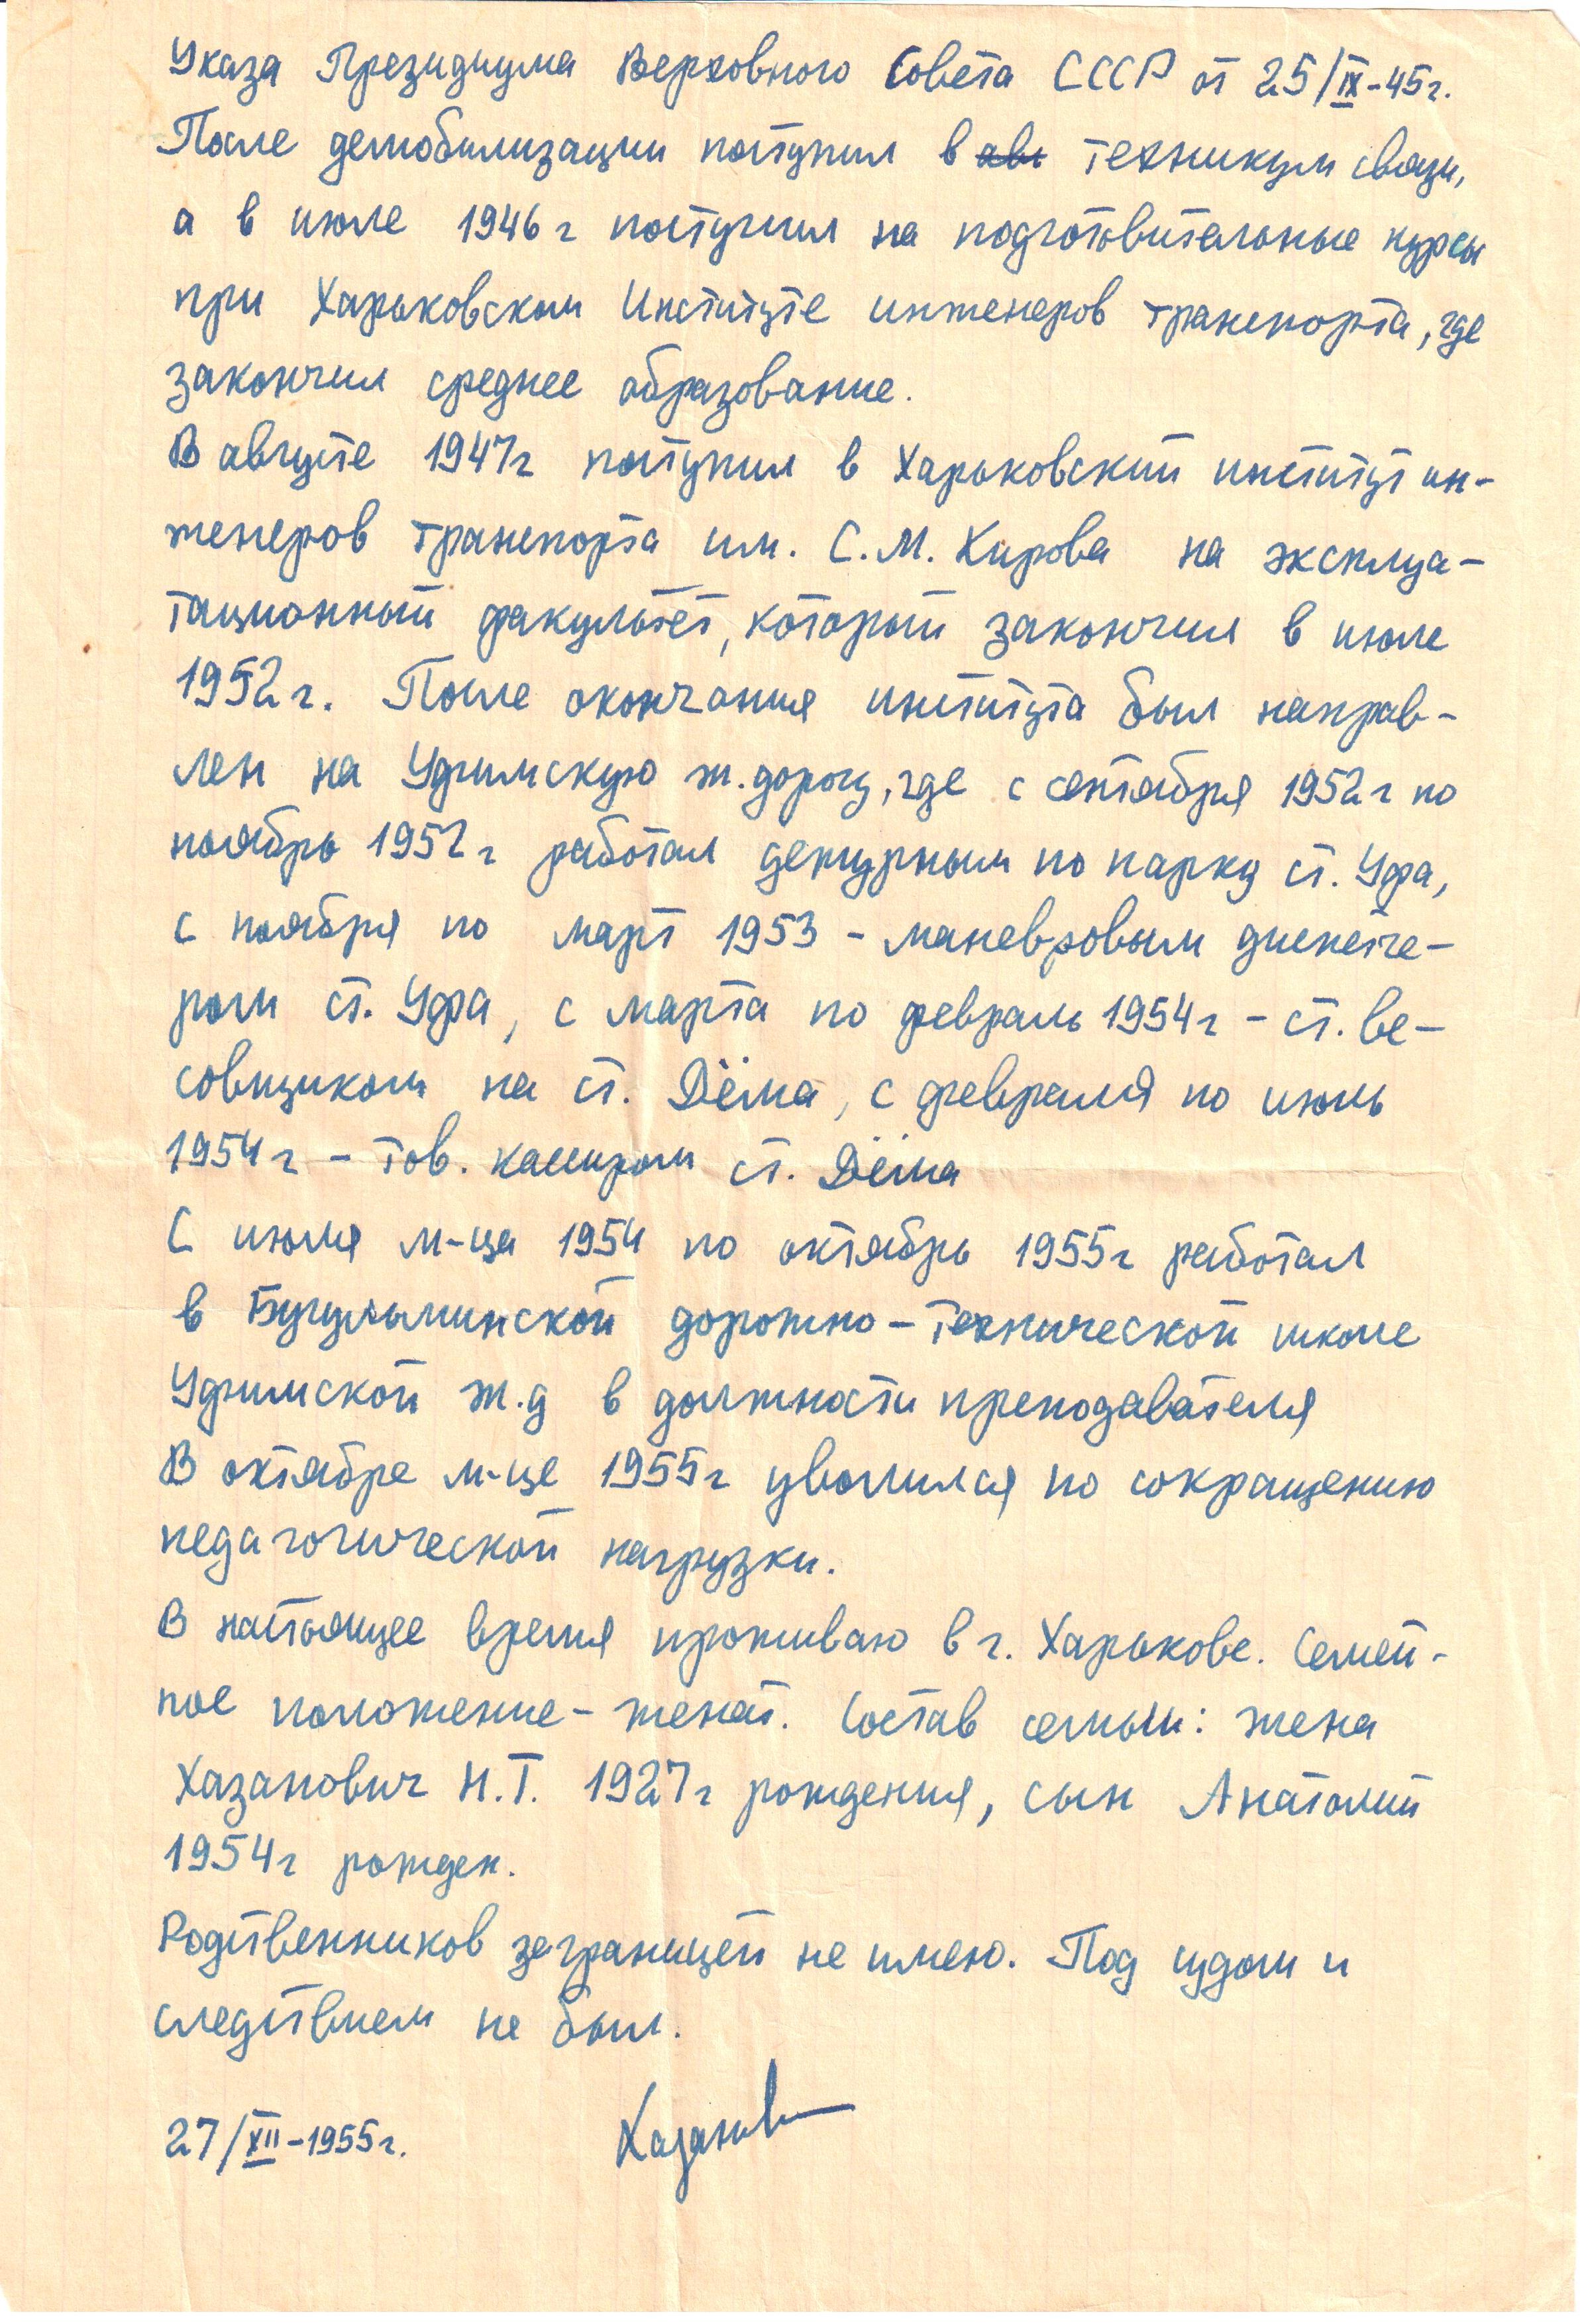 Указа Президиума Верховного Совета СССР от 25/IX-45г.
После демобилизации поступил в авг техникум связи,
а в июле 1946 г поступил на подготовительные курсы
при Харьковском Институте инженеров транспорта, где
закончил среднее образование.
В августе 1947г поступил в Харьковский институт ин-
женеров транспорта им. С.М. Кирова на эксплуа-
тационный факультет, который закончил в июле
1952г. После окончания института был направ-
лен на Уфимскую ж.дорогу, где с сентября 1952г по
ноябрь 1952 г работал дежурным по парку ст. Уфа,
с ноября по март 1953 - маневровым диспетче-
ром ст. Уфа, с марта по февраль 1954г - ст. ве-
совщиком на ст. Дёма, с февраля по июль
1954 г - тов. кассиром ст. Дёма
С июля м-ца 1954 по октябрь 1955г работал
в Бугульминской дорожно-технической школе
Уфимской ж.д в должности преподавателя
В октябре м-це 1955г уволился по сокращению
педагогической нагрузки.
В настоящее время проживаю в г. Харькове. Семей-
ное положение - женат. Состав семьи: жена
Хазанович Н.Т. 1927г рождения, сын Анатолий
1954г рожден.
Родственников заграницей не имею. Под судом и
следствием не был.
27/XII-1955г. Хазанов